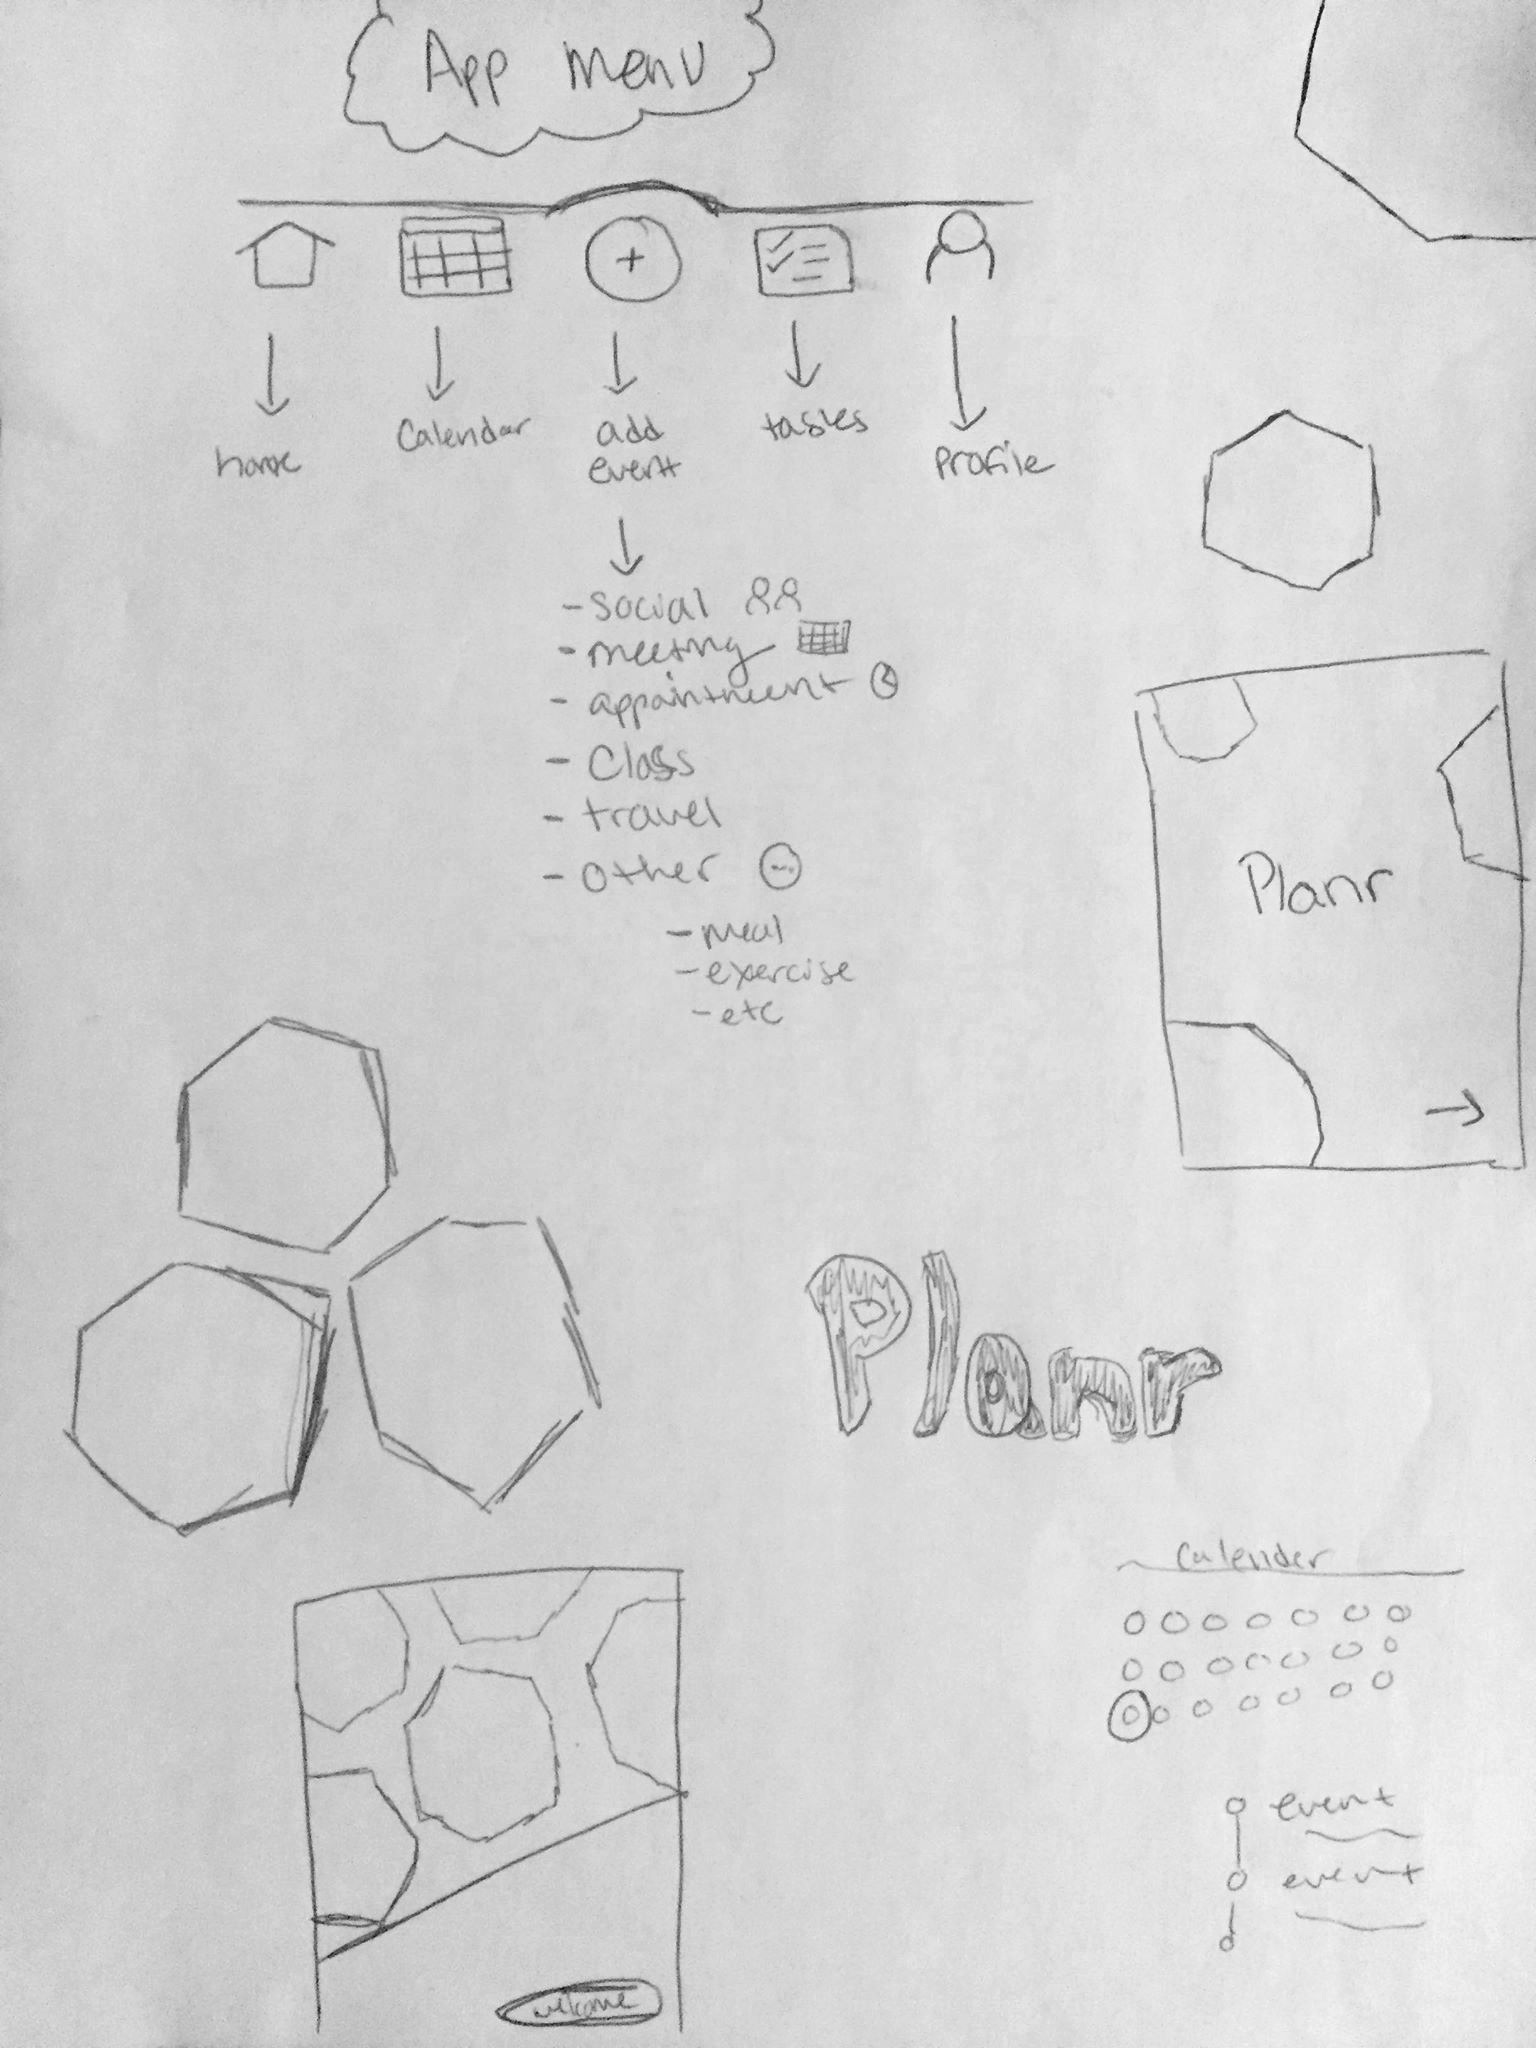 App Menu
home
Calendar
add
event
tasks
Profile
- Social
- meeting
- appointment
- Class
- travel
- Other
- meal
- exercise
- etc
Planr
Planr
Calender
event
event
welcome